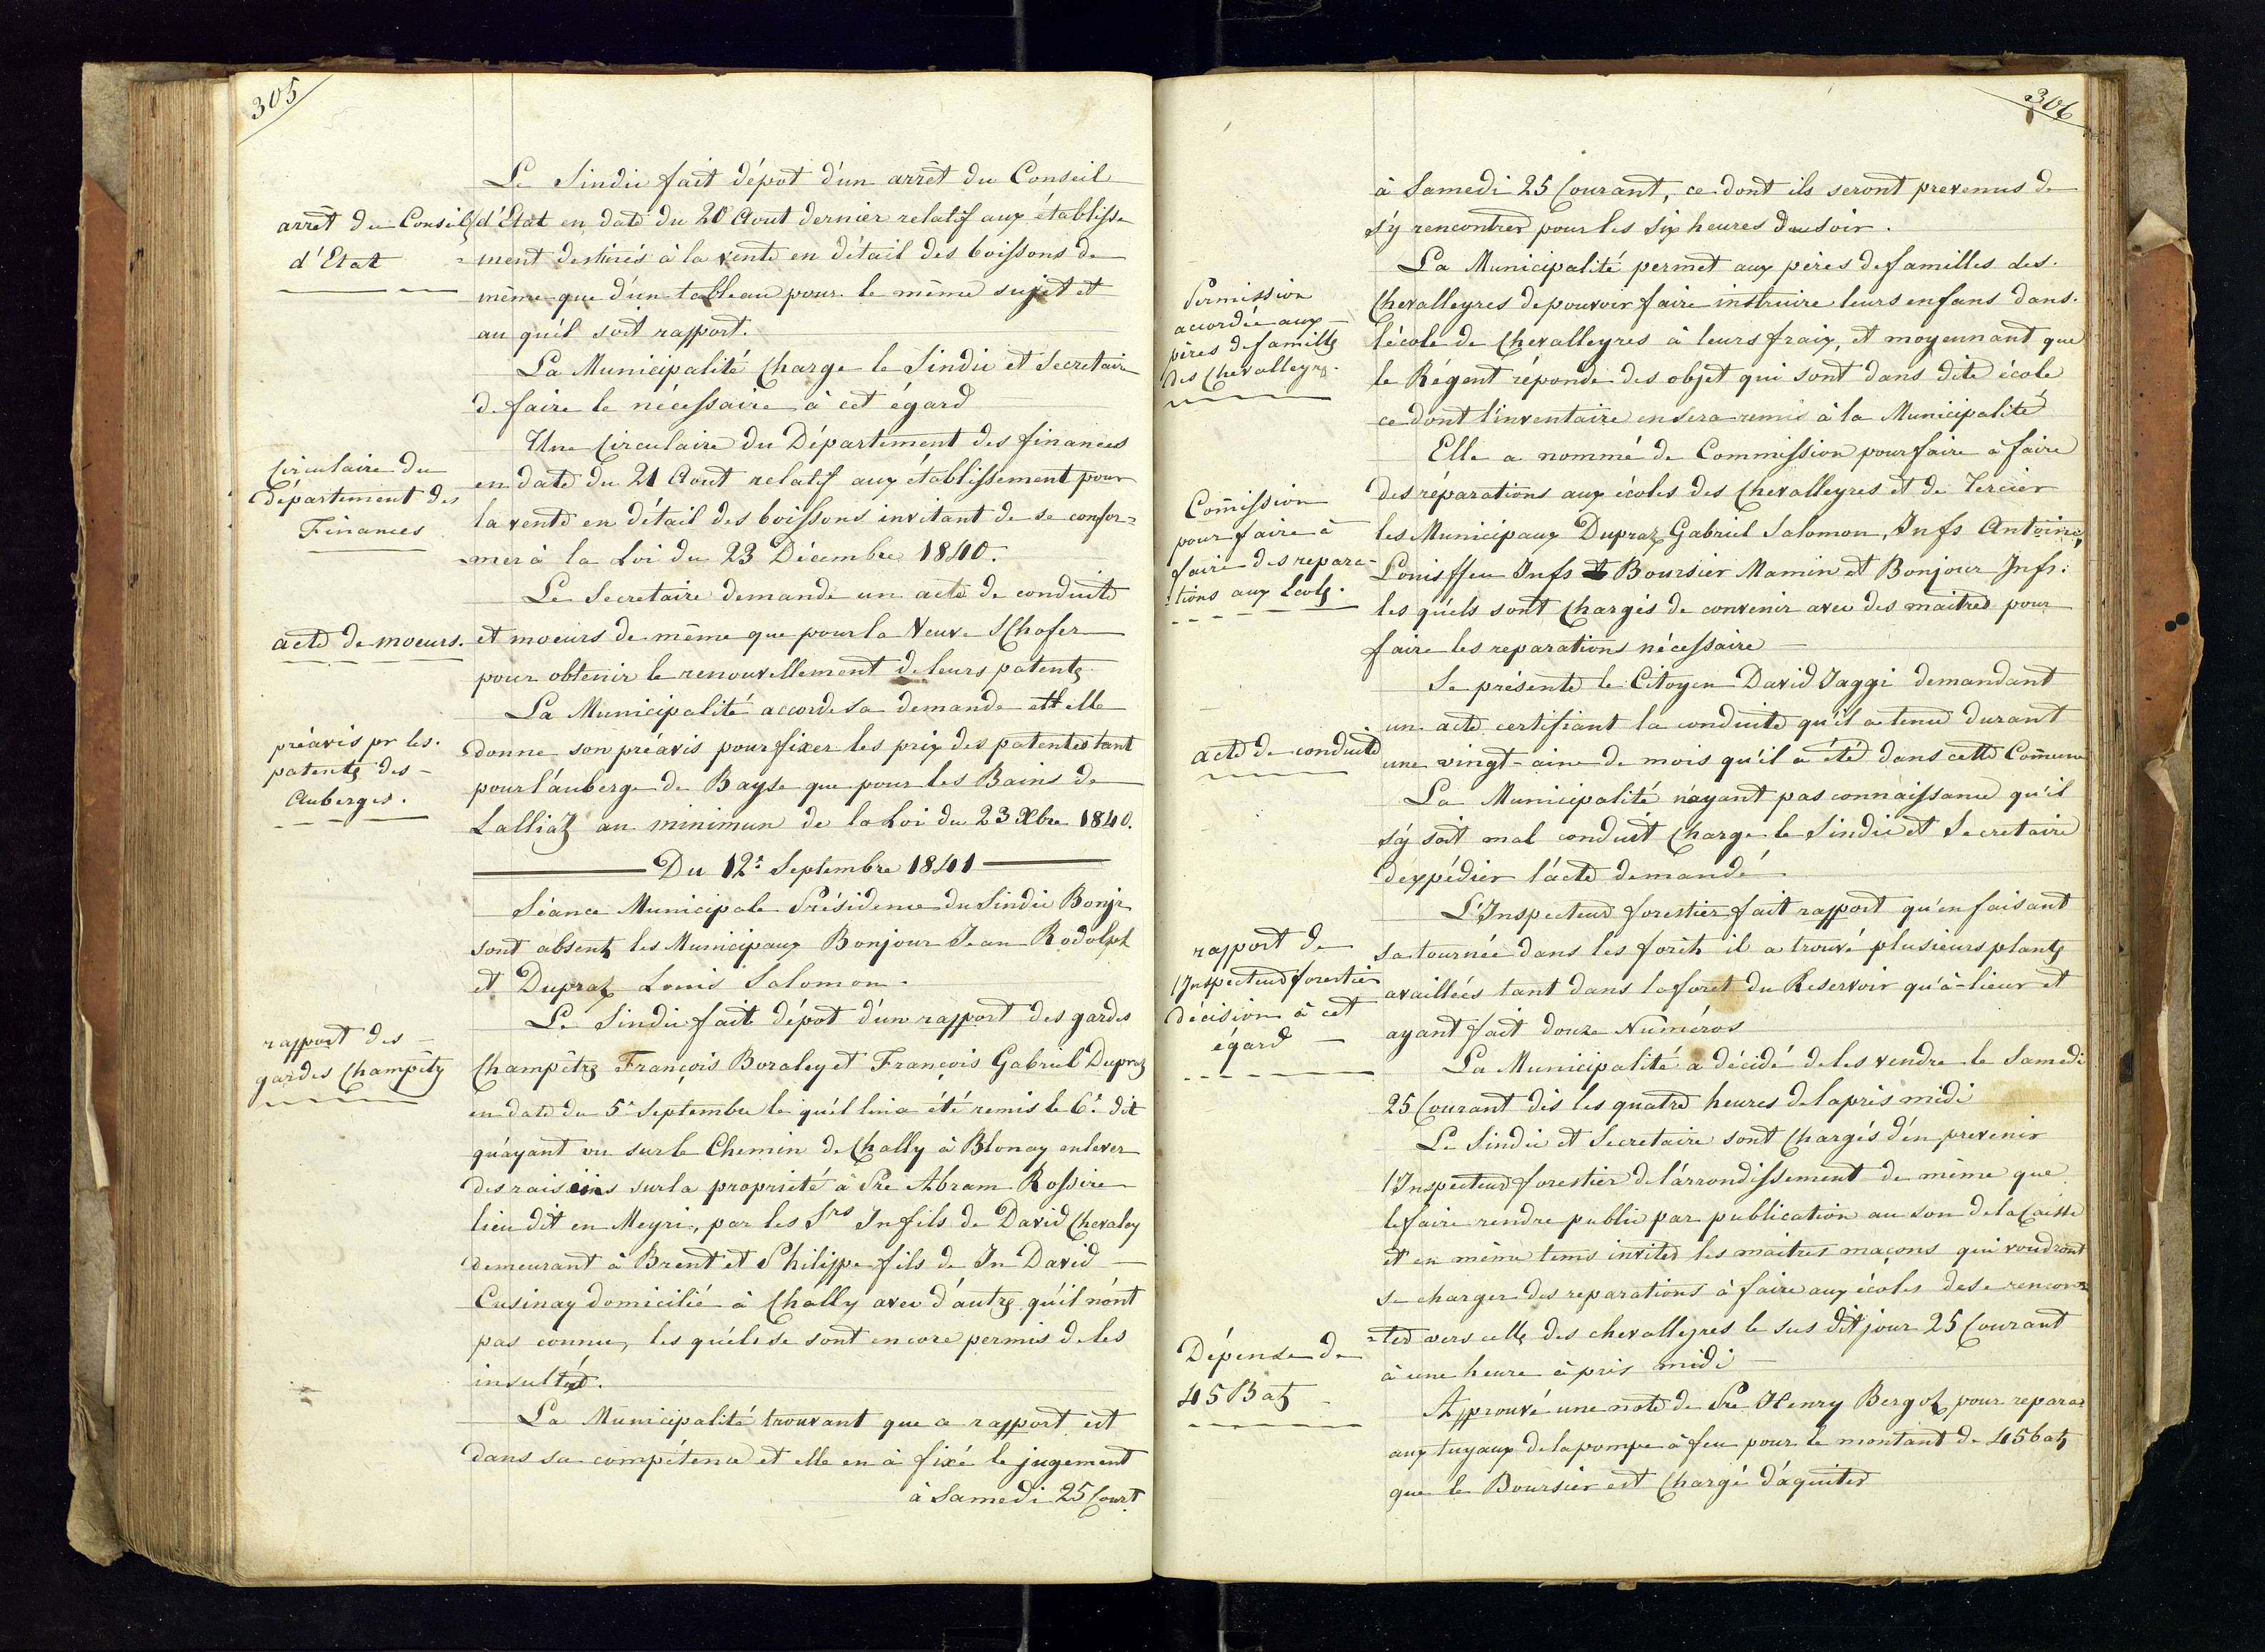 305
Le Sindic fait dépot d'un arrêt du Conseil
arrêt du Conseil
d'Etat
d'Etat en date du 20 Aout dernier relatif aux établisse
=ment destinés à la vente en détail des boissons de
même que d'un tableau pour le même sujet et
au quéil soit rapport.
La Municipalité Charge le Sindic et Secretaire
de faire le nécessaire à cet égard
Circulaire du
département des
Finances
Une Circulaire du Département des finances
en date du 21 Aout relatif aux établissement pour
la vente en détail des boissons invitant de se confor=
=mer à la Loi du 23 Décembre 1840.
acte de moeurs.
Le Secretaire demande un acte de conduite
et moeurs de même que pour la Veuve SChofer
pour obtenir le renouvellement de leurs patentes
préavis pr les
patentes des
Auberges.
La Municipalité accorde sa demande et elle
donne son préavis pour fixer les prix des patentes tant
pour l'auberge de Bayse que pour les Bains de
Lalliaz au minimun de la Loi du 23 Xbre 1840.
Du 12e Septembre 1841
Séance Municipale Présidence du Sindic Bonjr
sont absents les Municipaux Bonjour Jean Rodolph
et Dupraz Louis Salomon.
rapport des
gardes Champêtres
Le Sindic fait dépot d'un rapport des gardes
Champêtres François Boraley et François Gabriel Dupraz
en date du 5e Septembre le quél lui a été remis le 6e dit
qu'ayant vu sur le Chemin de Chally à Blonay enlever
des raisiins sur la propriété à Pre Abram Rossire
lieu dit en Meyri, par les Srs Jn fils de David Chevaley
demeurant à Brent et Philippe fils de Jn David
Cusinay domicilié à Chally avec d'autres qu'il n'ont
pas connu, les quéls se sont encore permis de les
insulter.
La Municipalité trouvant que ce rapport est
dans sa compétence et elle en à fixé le jugement
à Samedi 25 Court
306
à Samedi 25 Courant, ce dont ils seront prevenus de
s'y rencontrer pour les six heures du soir.
Permission
accordée aux
pères de familles
des Chevalleyres.
La Municipalité permet aux pères de familles des
Chevalleyres de pouvoir faire instruire leurs enfans dans
l'école de Chevalleyres à leurs fraix, et moyennant que
le Régent réponde des objet qui sont dans dite école
ce dont l'inventaire en sera remis à la Municipalité
Com̄ission
pour faire à
faire des repara=
=tions aux Ecoles.
Elle a nommé de Commission pour faire à faire
des réparations aux écoles des Chevalleyres et de Tercier
les Municipaux Dupraz Gabriel Salomon, Jnfs Antoine,
Louis ffeu Jnfs Boursier Mamin et Bonjour Jnfs:
les quéls sont Chargés de convenir avec des maitres pour
faire les reparations nécessaire
acte de conduite
Se présente le Citoyen David Jaggi demandant
un acte certifiant la conduite qu'il a tenue durant
une vingt-aine de mois qu'il a été dans cette Com̄une
La Municipalité n'ayant pas connaissance qu'il
s'y soit mal conduit Charge le Sindic et Secretaire
d'expédier l'acte demandé
rapport de
l'Inspecteur forestier
décision à cet
égard
L'Inspecteur forestier fait rapport qu'en faisant
sa tournée dans les forêts il a trouvé plusieurs plantes
availlées tant dans la foret du Reservoir qu'à-lieur et
ayant fait douze Numéros
La Municipalité a décidé de les vendre le Samedi
25 Courant dès les quatre heures de laprès midi
Le Sindic et Secretaire sont Chargés d'en prevenir
l'Inspecteur forestier de l'arrondissement de même que
le faire rendre public par publication au son de la Caisse
et en même tems inviter les maitres maçons qui voudront
se charger des reparations à faire aux écoles de se rencon=
=trer vers celles des chevalleyres le sus dit jour 25 Courant
à une heure à près midi
Dépense de
45 Batz
Approuvé une note de Pre Henry Bergoz, pour repara=
aux tuyaux de la pompe à feu pour le montant de 45 batz
que le Boursier est Chargé d'aquiter